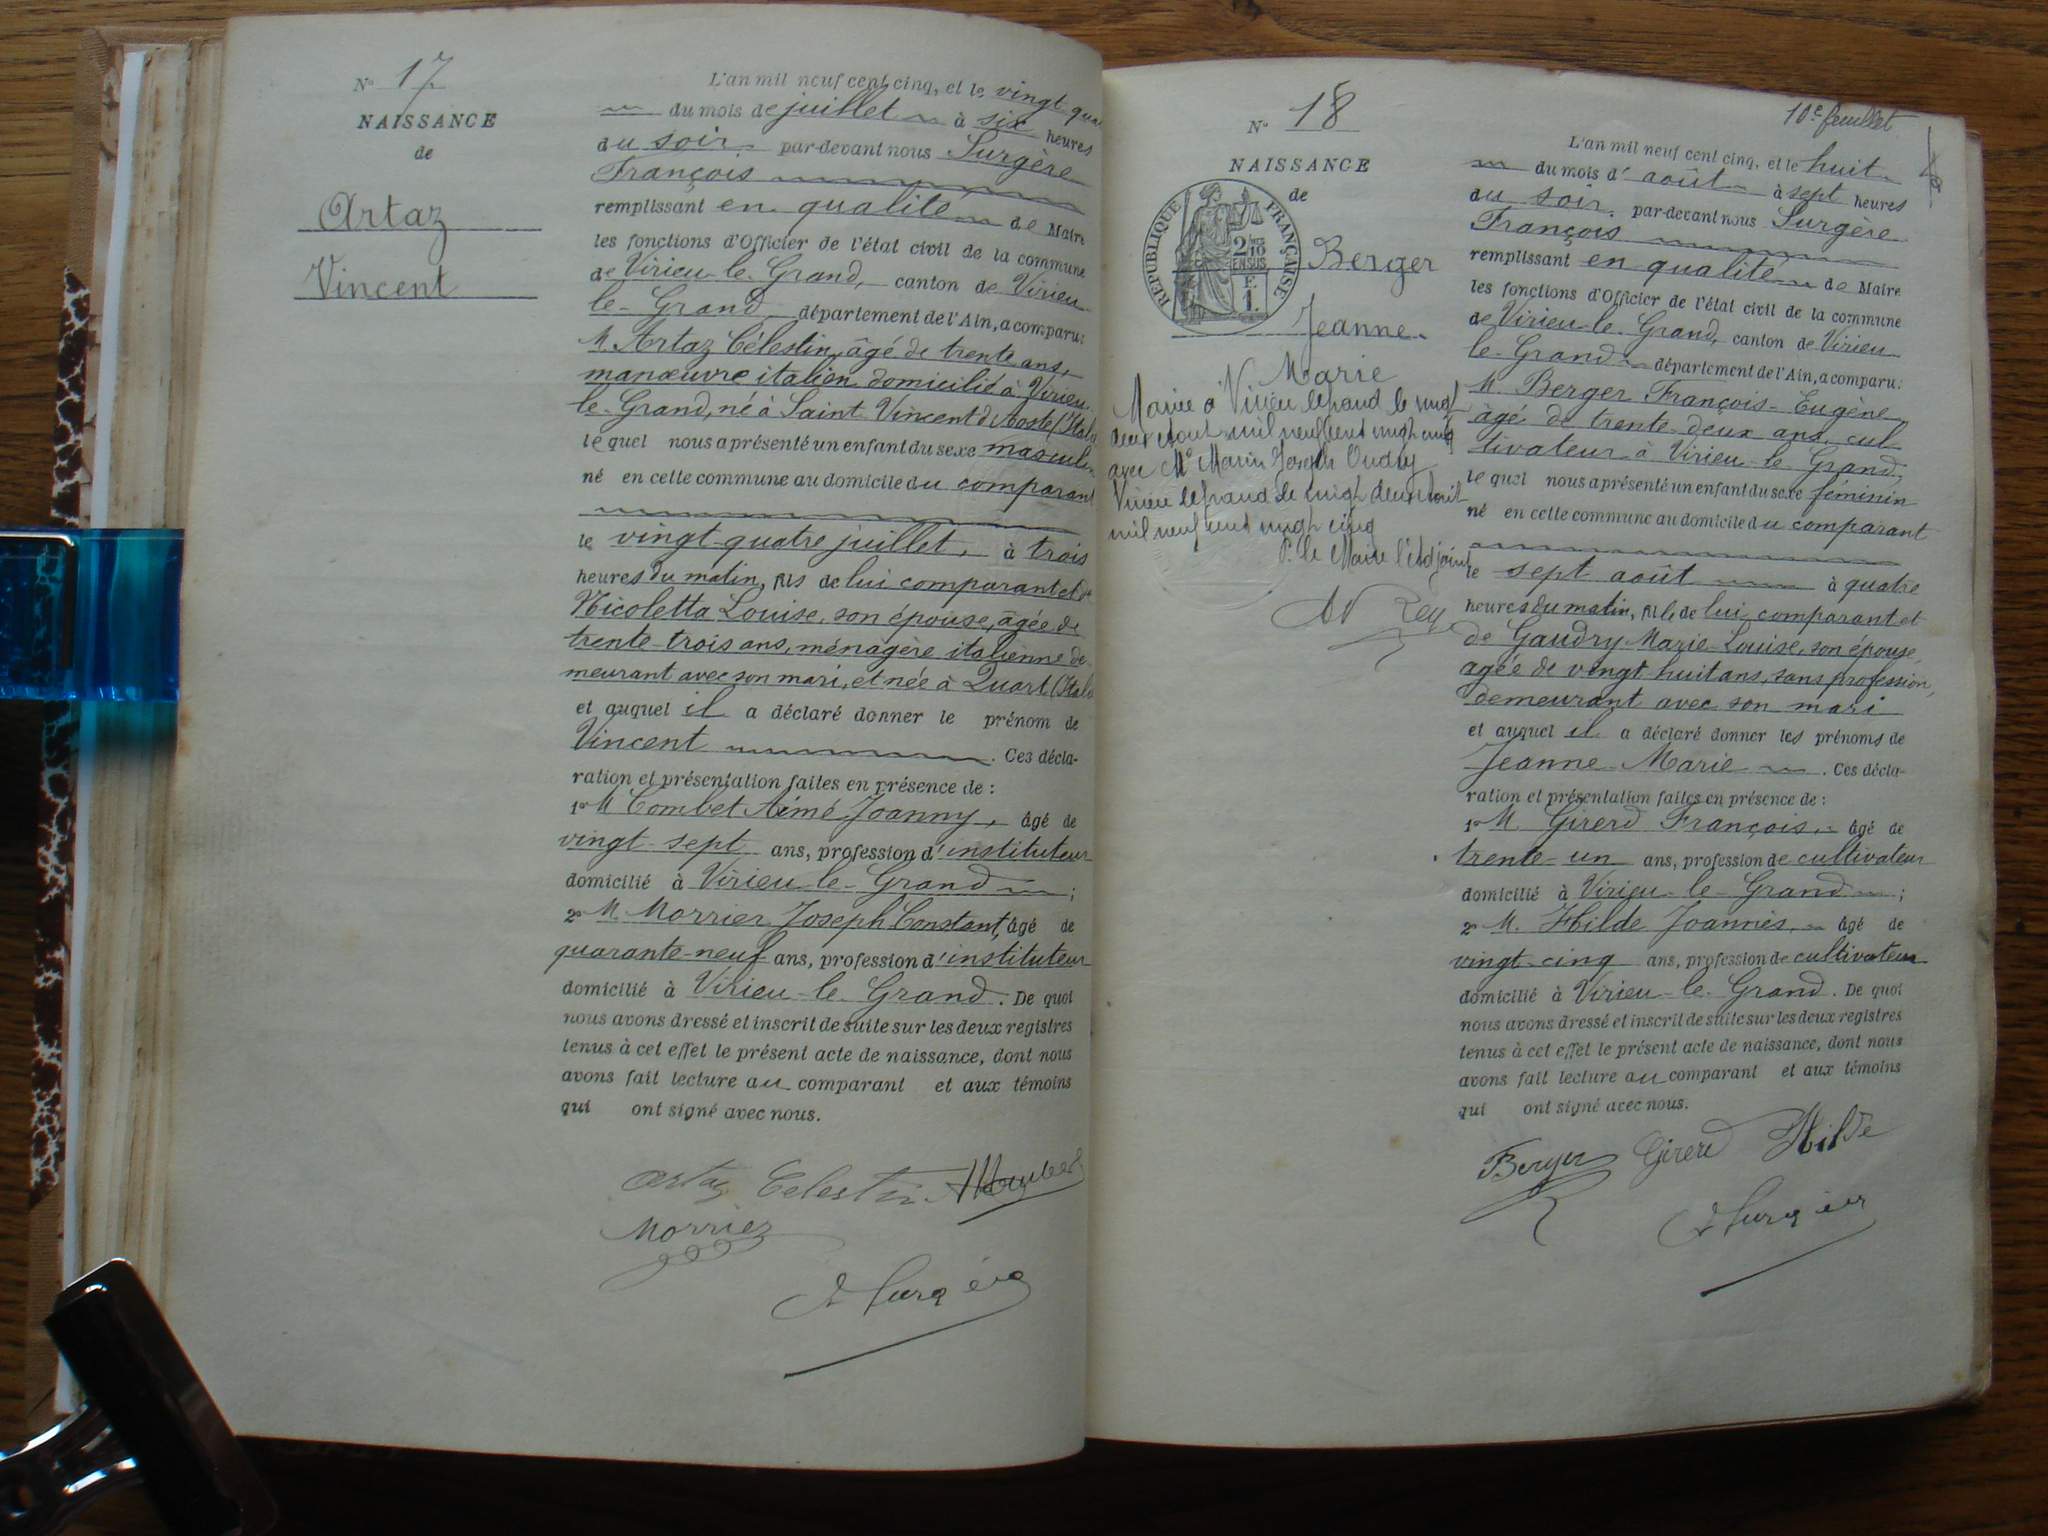 N° 17
NAISSANCE
de
Artaz
Vincent
L'an mil neuf cent cinq, et le vingt qua
du mois de juillet à six heures
du soir par-devant nous Surgère
François
remplissant en qualité de Maire
les fonctions d'Officier de l'état civil de la commune
de Virieu-le-Grand, canton de Virieu
le-Grand, département de l'Ain, a comparu:
M. Artaz Célestin, âgé de trente ans,
manœuvre italien domicilié à Virieu
le-Grand, né à Saint Vincent d'Aoste (Itali
lequel nous a présenté un enfant du sexe masculin
né en cette commune au domicile du comparant
le vingt-quatre juillet, à trois
heures du matin, fils de lui comparant et de
Nicoletta Louise, son épouse, âgée de
trente-trois ans, ménagère italienne de
meurant avec son mari, et née à Quart (Itali
et auquel il a déclaré donner le prénom de
Vincent. Ces décla-
ration et présentation faites en présence de :
1° M Combet Aimé Joanny, âgé de
vingt-sept ans, profession d'instituteur
domicilié à Virieu-le-Grand ;
2° M. Morrier Joseph Constant, âgé de
quarante-neuf ans, profession d'instituteur
domicilié à Virieu-le-Grand. De quoi
nous avons dressé et inscrit de suite sur les deux registres
tenus à cet effet le présent acte de naissance, dont nous
avons fait lecture au comparant et aux témoins
qui ont signé avec nous.
Artaz Celestin
Morrier
Surgère
10e feuillet
N° 18
NAISSANCE
de
RÉPUBLIQUE FRANÇAISE
2/10
EN SUS
F.
1.
Berger
Jeanne-
Marie
Mariée à Virieu legrand le vingt
deux août mil neuf cent vingt cinq
avec Mr Marin Joseph Oudry
Virieu legrand le vingt deux août
mil neuf cent vingt cinq
P. le Maire l'adjoint
Rey
L'an mil neuf cent cinq, et le huit
du mois d'août à sept heures
du soir, par-devant nous Surgère
François
remplissant en qualité de Maire
les fonctions d'Officier de l'état civil de la commune
de Virieu-le-Grand, canton de Virieu
le-Grand département de l'Ain, a comparu:
M. Berger François-Eugène
âgé de trente-deux ans, cul
tivateur à Virieu-le-Grand,
lequel nous a présenté un enfant du sexe féminin
né en cette commune au domicile du comparant
le sept août à quatre
heures du matin, fille de lui comparant et
de Gaudry Marie-Louise, son épouse,
âgée de vingt huit ans, sans profession,
demeurant avec son mari
et auquel il a déclaré donner les prénoms de
Jeanne Marie. Ces décla-
ration et présentation faites en présence de :
1° M. Girerd François, âgé de
trente-un ans, profession de cultivateur
domicilié à Virieu-le-Grand ;
2° M. Hilde Joannès, âgé de
vingt-cinq ans, profession de cultivateur
domicilié à Virieu-le-Grand. De quoi
nous avons dressé et inscrit de suite sur les deux registres
tenus à cet effet le présent acte de naissance, dont nous
avons fait lecture au comparant et aux témoins
qui ont signé avec nous.
Berger Girerd Hilde
Surgère